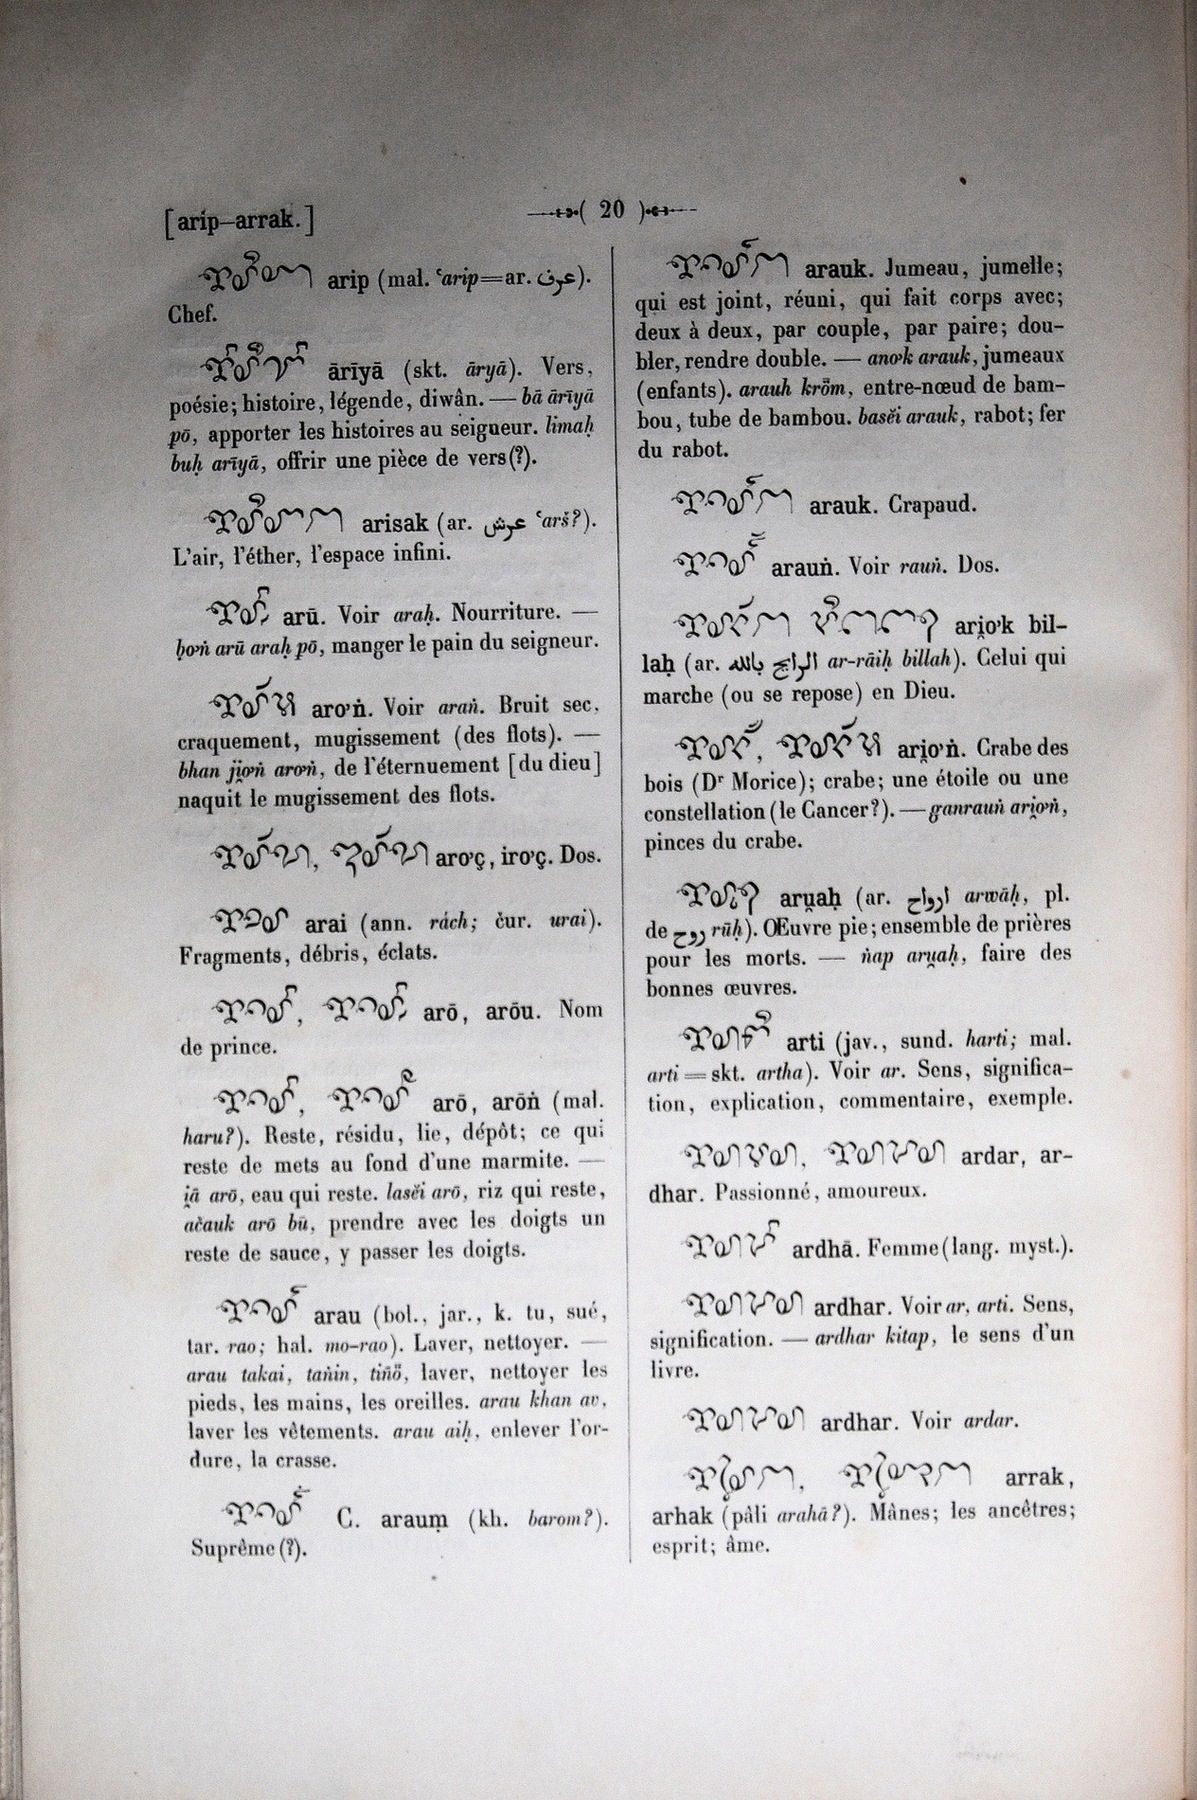 [arip–arrak.]
( 20 )
arip (mal. ‘arip=ar. عرف).
Chef.
ārīyā (skt. āryā). Vers,
poésie; histoire, légende, diwân. — bā ārīyā
pō, apporter les histoires au seigneur. limaḥ
buḥ arīyā, offrir une pièce de vers(?).
arisak (ar. عرش ‘arš?).
L'air, l'éther, l'espace infini.
arū. Voir araḥ. Nourriture. —
arū araḥ pō, manger le pain du seigneur.
aro'ṅ. Voir araṅ. Bruit sec,
craquement, mugissement (des flots). —
bhan aro'ṅ, de l'éternuement [du dieu]
naquit le mugissement des flots.
aro'ç, iro'ç. Dos.
arai (ann. rách; čur. urai).
Fragments, débris, éclats.
arō, arōu. Nom
de prince.
arō, arōṅ (mal.
haru?). Reste, résidu, lie, dépôt; ce qui
reste de mets au fond d'une marmite. —
arō, eau qui reste. lasĕi arō, riz qui reste,
ačauk arō bū, prendre avec les doigts un
reste de sauce, y passer les doigts.
arau (bol., jar., k. tu, sué,
tar. rao; hal. mo-rao). Laver, nettoyer. —
arau takai, laver, nettoyer les
pieds, les mains, les oreilles. arau khan av,
laver les vêtements. arau aiḥ, enlever l'or-
dure, la crasse.
C. arauṃ (kh. barom?).
Suprême(?).
arauk. Jumeau, jumelle;
qui est joint, réuni, qui fait corps avec;
deux à deux, par couple, par paire; dou-
bler, rendre double. — ano'k arauk, jumeaux
(enfants). arauh entre-nœud de bam-
bou, tube de bambou. basĕi arauk, rabot; fer
du rabot.
arauk. Crapaud.
arauṅ. Voir rauṅ. Dos.
ari̯o'k bil-
laḥ (ar. الراج بالله ar-rāiḥ billah). Celui qui
marche (ou se repose) en Dieu.
ari̯o'ṅ. Crabe des
bois (Dr Morice); crabe; une étoile ou une
constellation (le Cancer?). — ganrauṅ ari̯o'ṅ,
pinces du crabe.
aru̯aḥ (ar. ارواح arwāḥ, pl.
de روح rūḥ). Œuvre pie; ensemble de prières
pour les morts. — ṅap aru̯aḥ, faire des
bonnes œuvres.
arti (jav., sund. harti; mal.
arti=skt. artha). Voir ar. Sens, significa-
tion, explication, commentaire, exemple.
ardar, ar-
dhar. Passionné, amoureux.
ardhā. Femme (lang. myst.).
ardhar. Voir ar, arti. Sens,
signification. — ardhar kitap, le sens d'un
livre.
ardhar. Voir ardar.
arrak,
arhak (pâli arahā?). Mânes; les ancêtres;
esprit; âme.